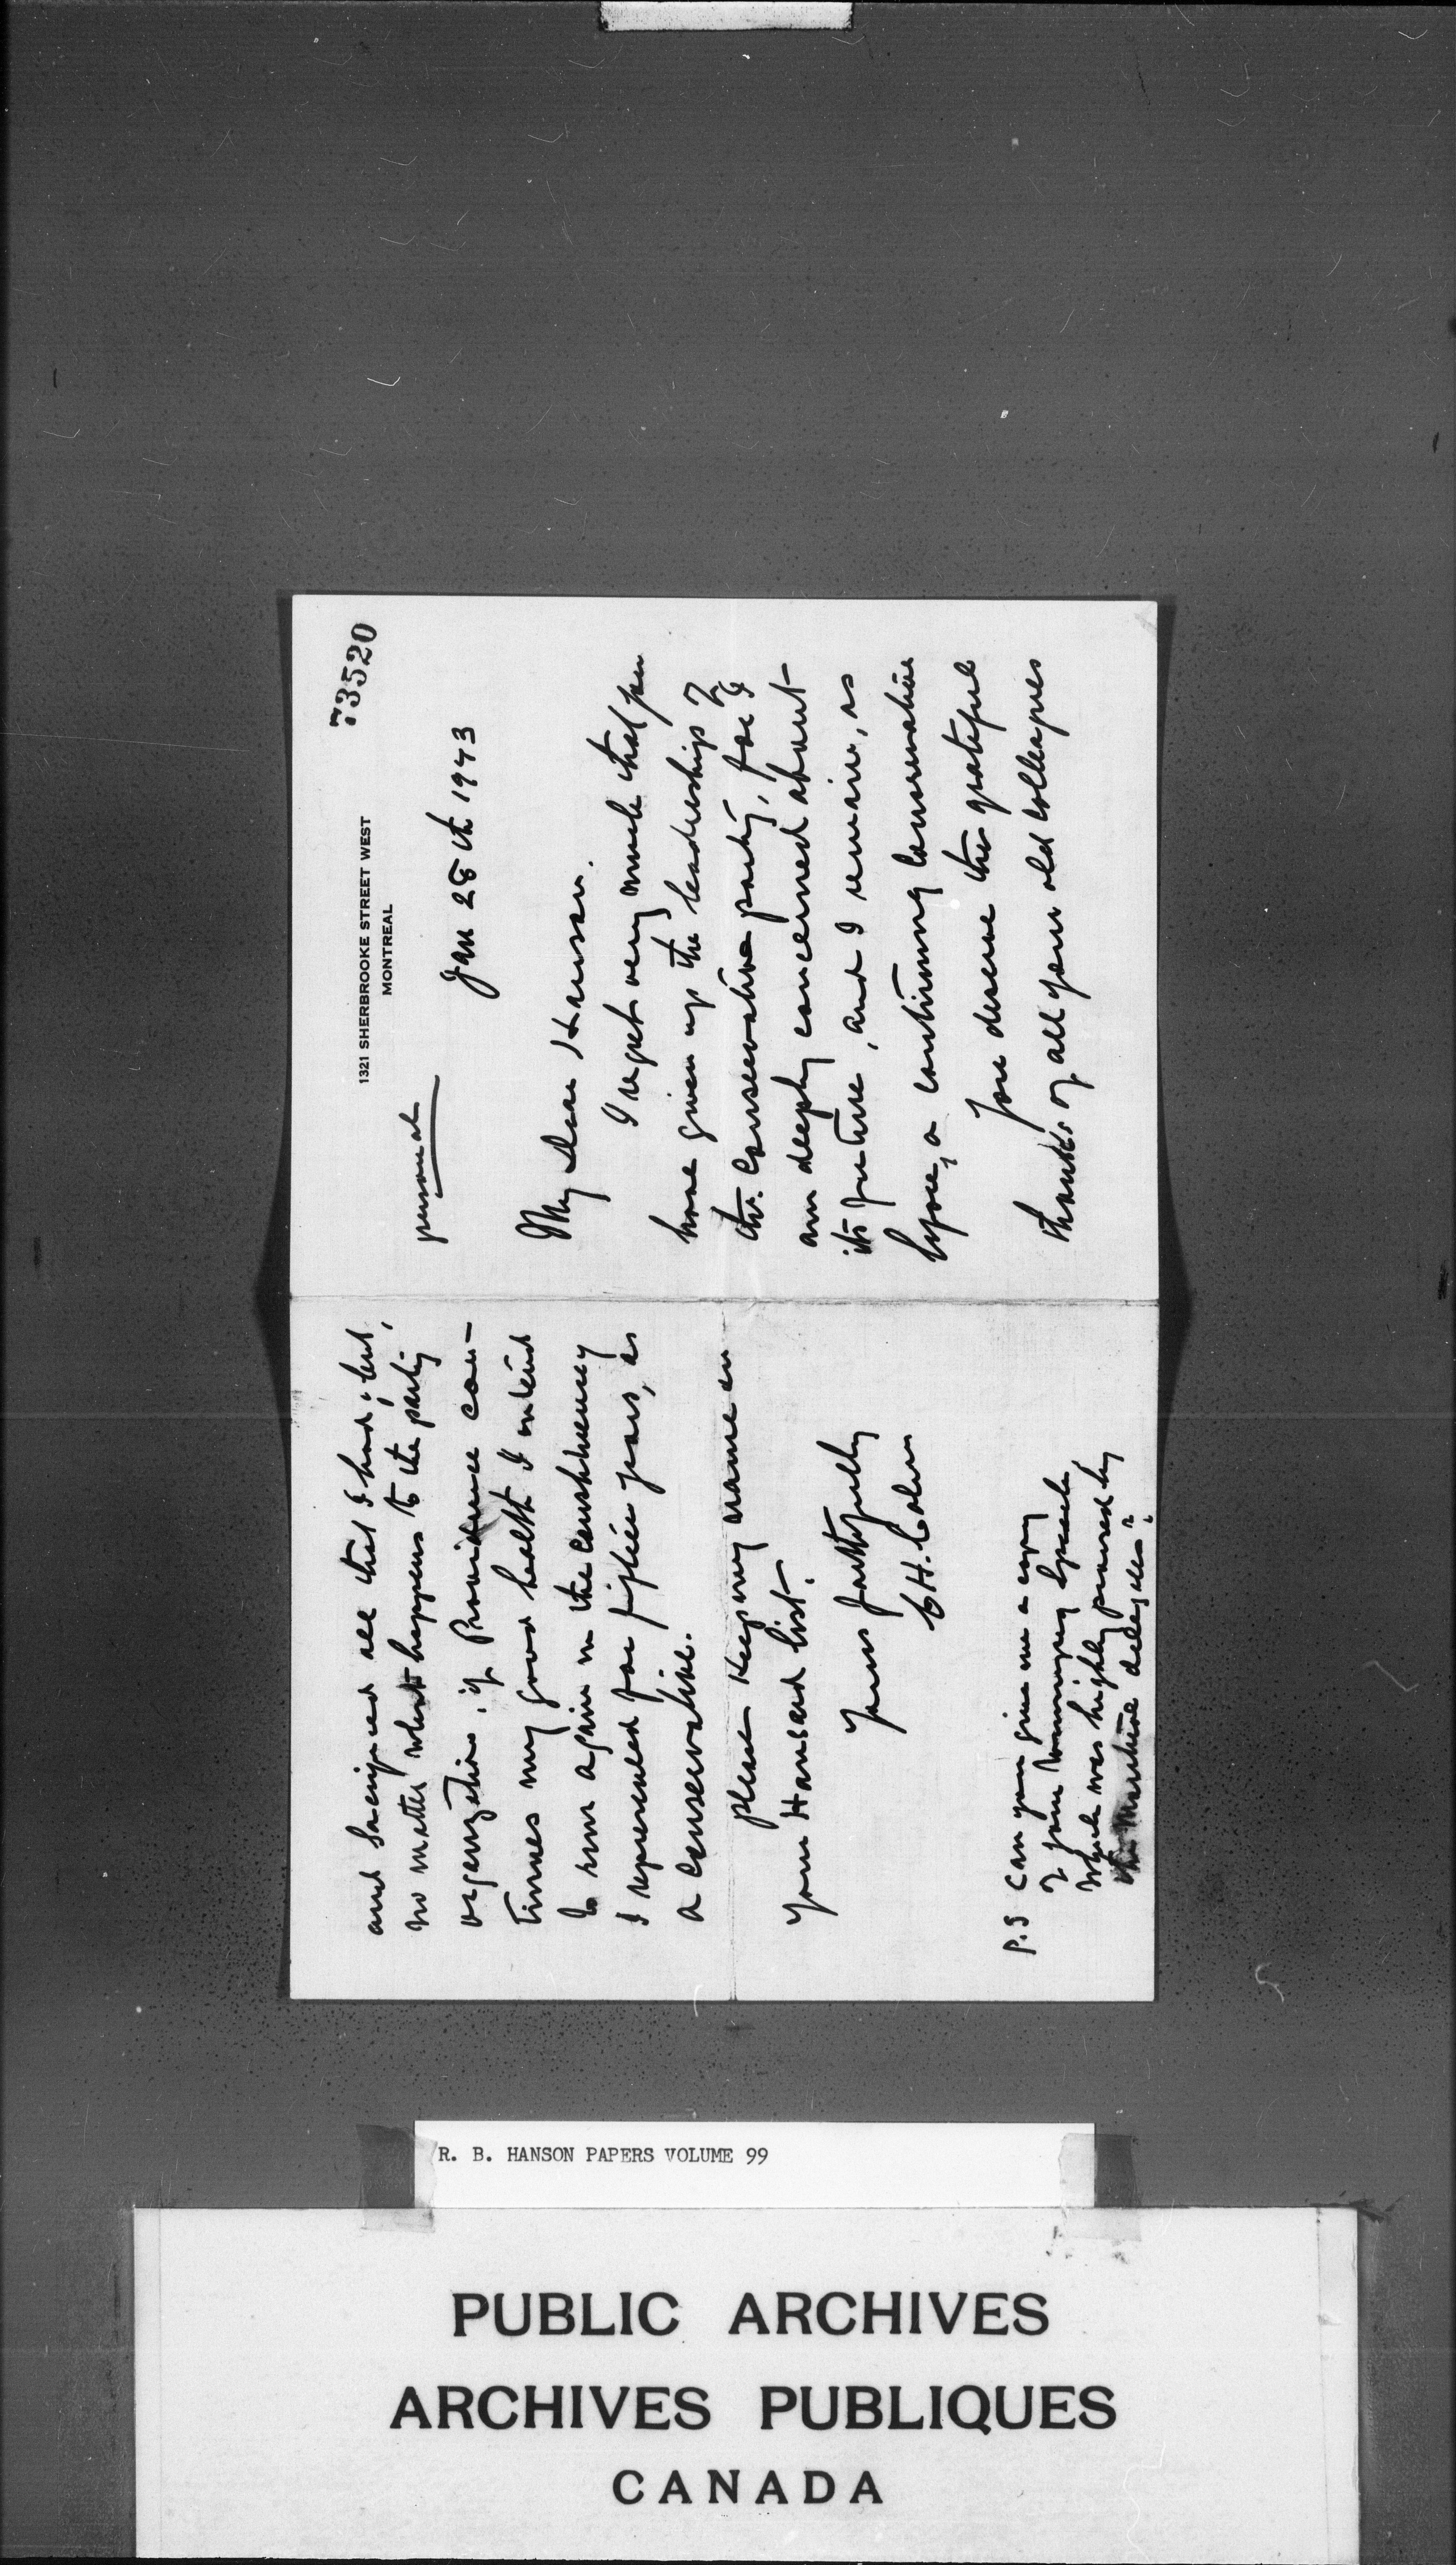 73520
1321 SHERBROOKE STREET WEST
MONTREAL
personal
Jan 28th 1943
My dear Hanson.
I regret very much that you
have given up the leadership of
the Conservative party, for I
am deeply concerned about
its future, and I remain, as
before, a continuing Conservative
You deserve the grateful
thanks of all your old colleagues
and sacrificed all that I had; but,
no matter what happens to the party
organization, if Providence con-
tinues my good health I intend
to run again in the constituency
I represented for fifteen years, as
a conservative.
please keep my name on
your Hansard list.
Yours faithfully
C H. Cahan
P.S Can you give me a copy
of your Winnipeg Speech,
which was highly praised by
the Maritime delegates?
R. B. HANSON PAPERS VOLUME 99
PUBLIC ARCHIVES
ARCHIVES PUBLIQUES
CANADA